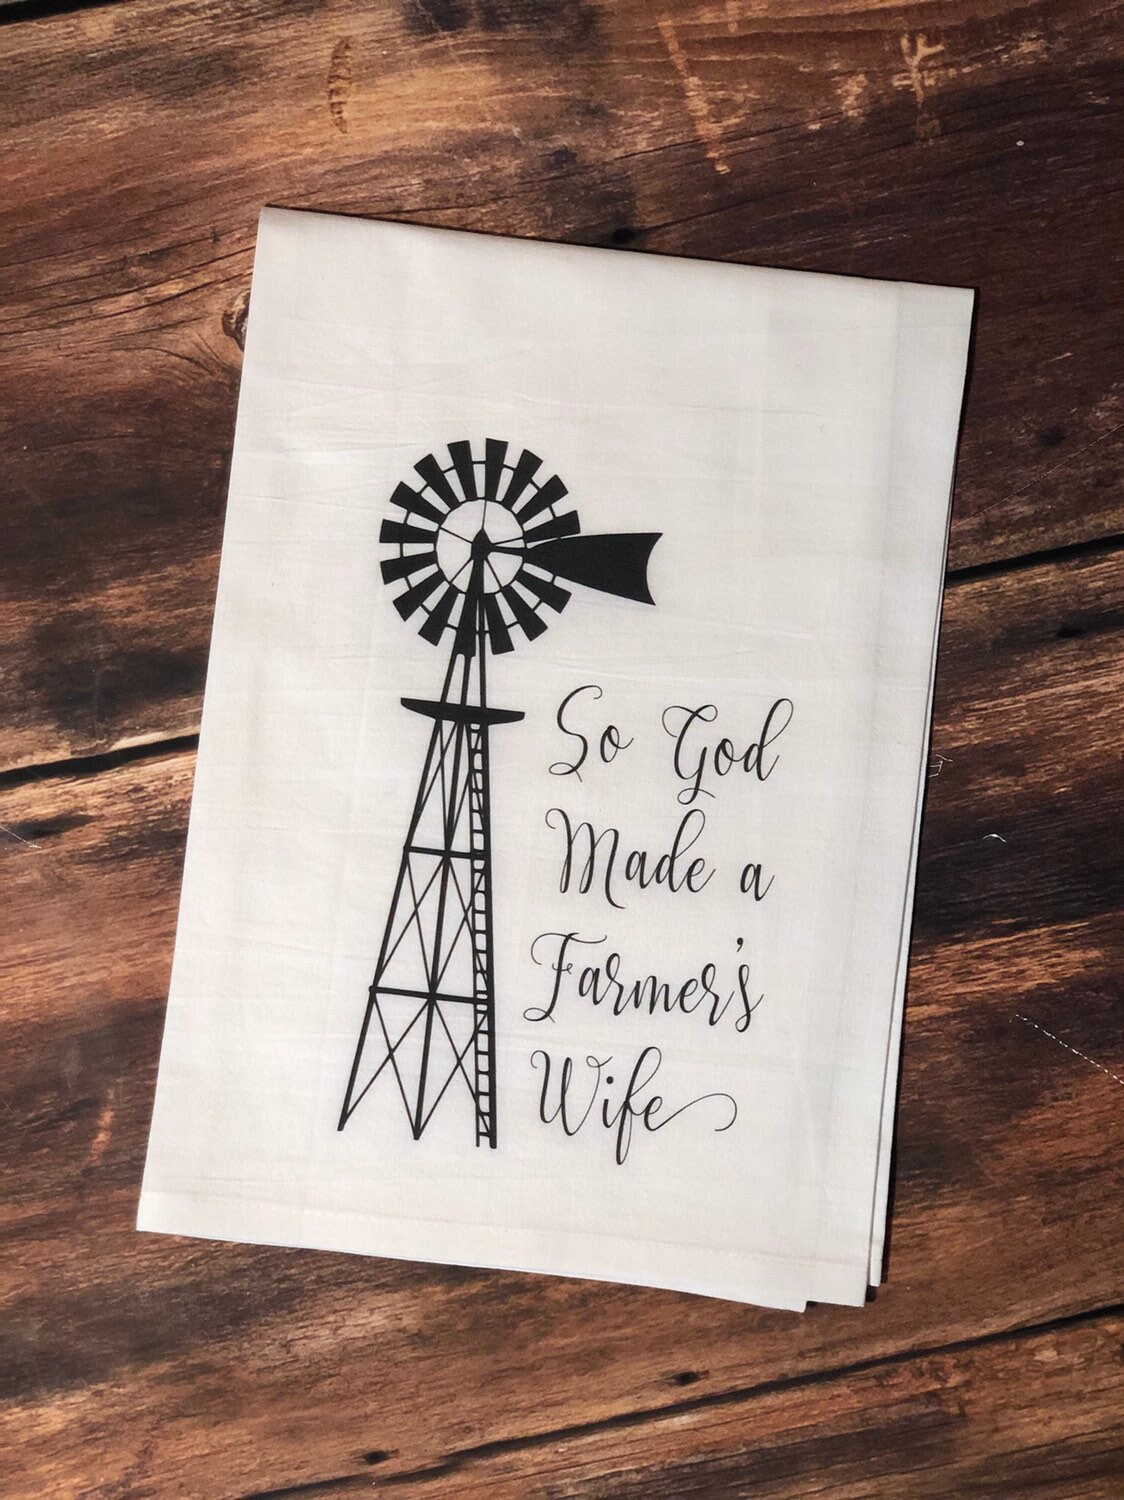 So God
Made a
Farmer's
Wife